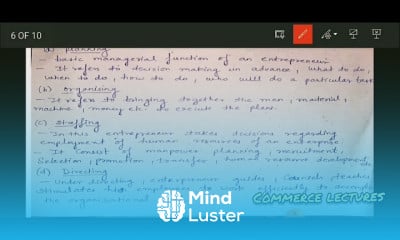 6 OF 10
(a) Planning
- basic managerial function of an entrepreneur
- It refers to decision making in advance, what to do,
when to do, how to do, who will do a particular task
(b) Organising
- It refers to bringing together the men, material,
machine, money etc. to execute the plans.
(c) Staffing
- In this entrepreneur takes decisions regarding
employment of human resources of an enterprise
- It consist of manpower planning, recruitment,
Selection, promotion, transfer, human resource development
(d) Directing
- Under directing, entrepreneur guides, Counsels, teaches
Stimulates his employees to work efficiently to
the organisational
Mind
Luster
COMMERCE LECTURES